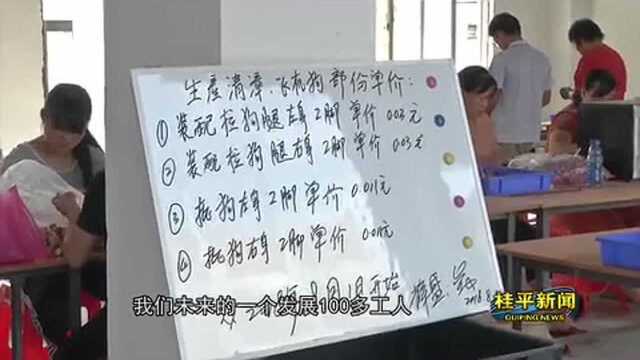 生產清單:飞虎狗部份单价:
① 装配拉狗腿左身2脚 单价 0.03元
② 装配拉狗腿右身2脚 单价 0.03元
③ 批狗左身2脚单价 0.011元
④ 批狗右身2脚单价 0.011元
月1日开始
我们未来的一个发展100多工人
桂平新闻
GUIPING NEWS